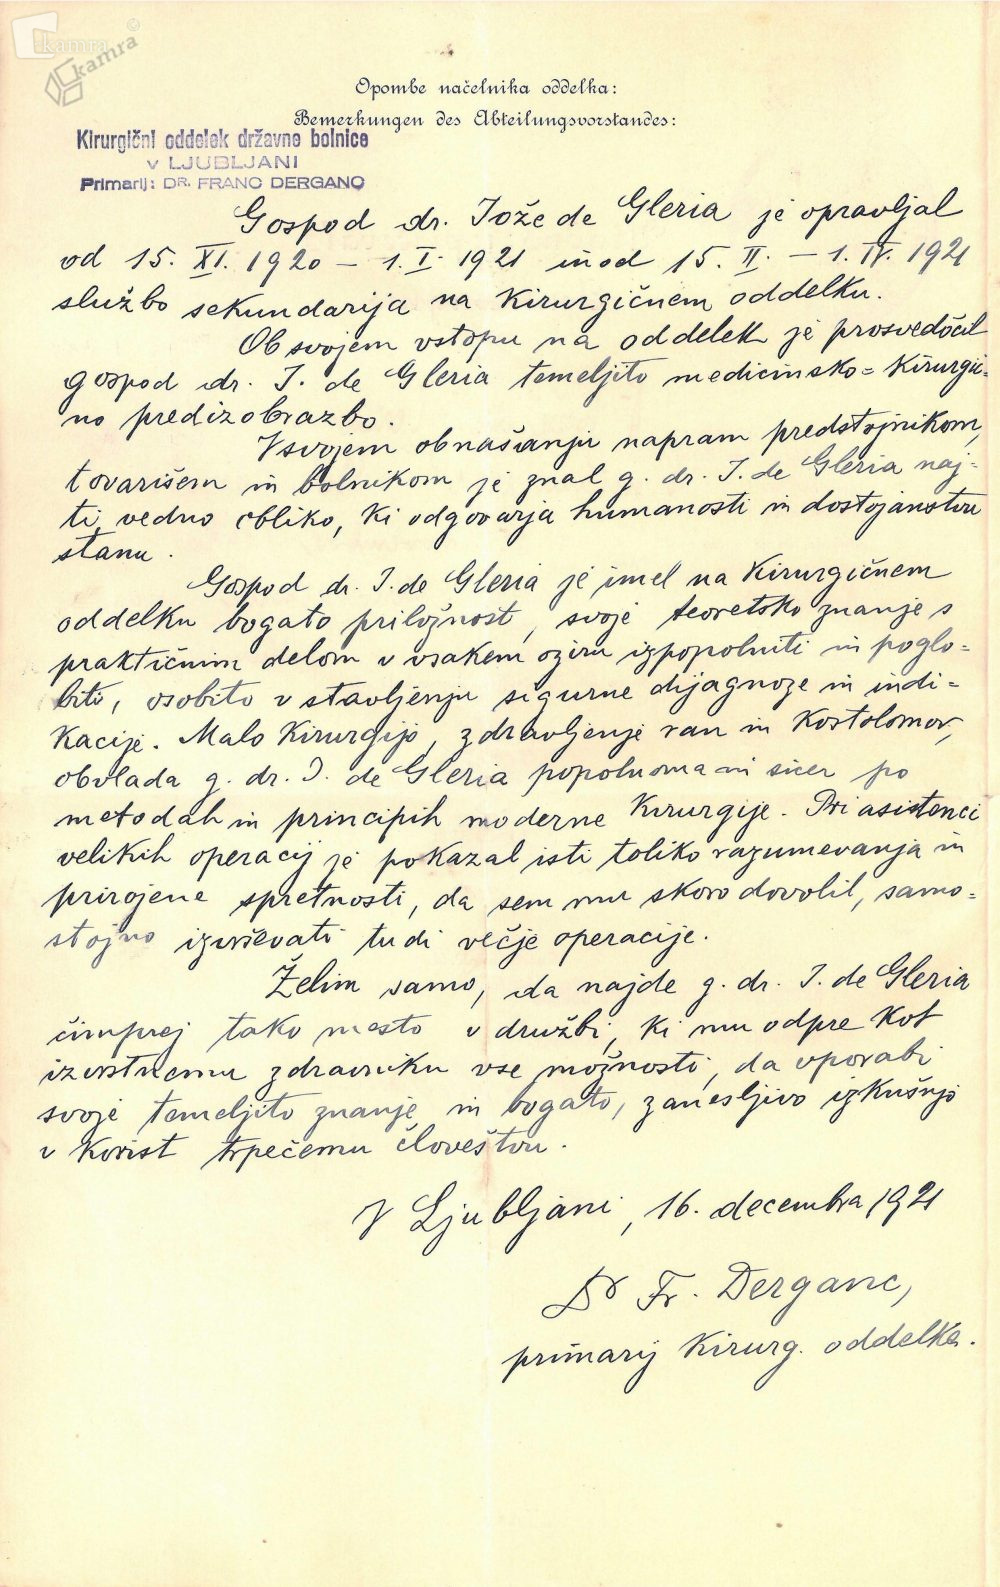 kamra
kamra
Opombe načelnika oddelka:
Bemerkungen des Abteilungsvorstandes:
Kirurgični oddelek državne bolnice
v LJUBLJANI
Primarij: DR. FRANC DERGANC
Gospod dr. Jože de Gleria je opravljal
od 15. XI. 1920 – 1. I. 1921 in od 15. II. – 1. IV. 1921
službo sekundarija na kirurgičnem oddelku.
Ob svojem vstopu na oddelek je prosvedočil
gospod dr. J. de Gleria temeljito medicinsko=kirurgič=
no predizobrazbo.
V svojem obnašanju napram predstojnikom,
tovarišem in bolnikom je znal g. dr. J. de Gleria naj-
ti vedno obliko, ki odgovarja humanosti in dostojanstvu
stanu.
Gospod dr. J. de Gleria je imel na kirurgičnem
oddelku bogato priložnost, svoje teoretsko znanje s
praktičnim delom v vsakem oziru izpopolniti in poglo-
biti, osobito v stavljenju sigurne dijagnoze in indi=
kacije. Malo kirurgijo, zdravljenje ran in kostolomov,
obvlada g. dr. J. de Gleria popolnoma in sicer po
metodah in principih moderne kirurgije. Pri asistenci
velikih operacij je pokazal isti toliko razumevanja in
prirojene spretnosti, da sem mu skoro dovolil, samo=
stojno izvrševati tudi večje operacije.
Želim samo, da najde g. dr. J. de Gleria
čimprej tako mesto v družbi, ki mu odpre kot
izvrstnemu zdravniku vse možnosti, da uporabi
svoje temeljito znanje in bogato, zanesljivo izkušnjo
v korist trpečemu človeštvu.
V Ljubljani, 16. decembra 1921
Dr Fr. Derganc,
primarij kirurg. oddelka.